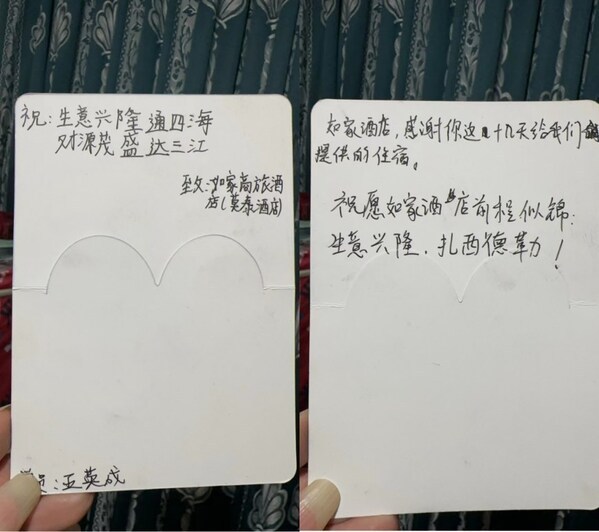 祝:生意兴隆通四海
财源茂盛达三江
致:如家商旅酒
店(莫泰酒店)
学员:汪英成
如家酒店,感谢你这十几天给我们
提供的住宿。
祝愿如家酒店前程似锦:
生意兴隆,扎西德勒!